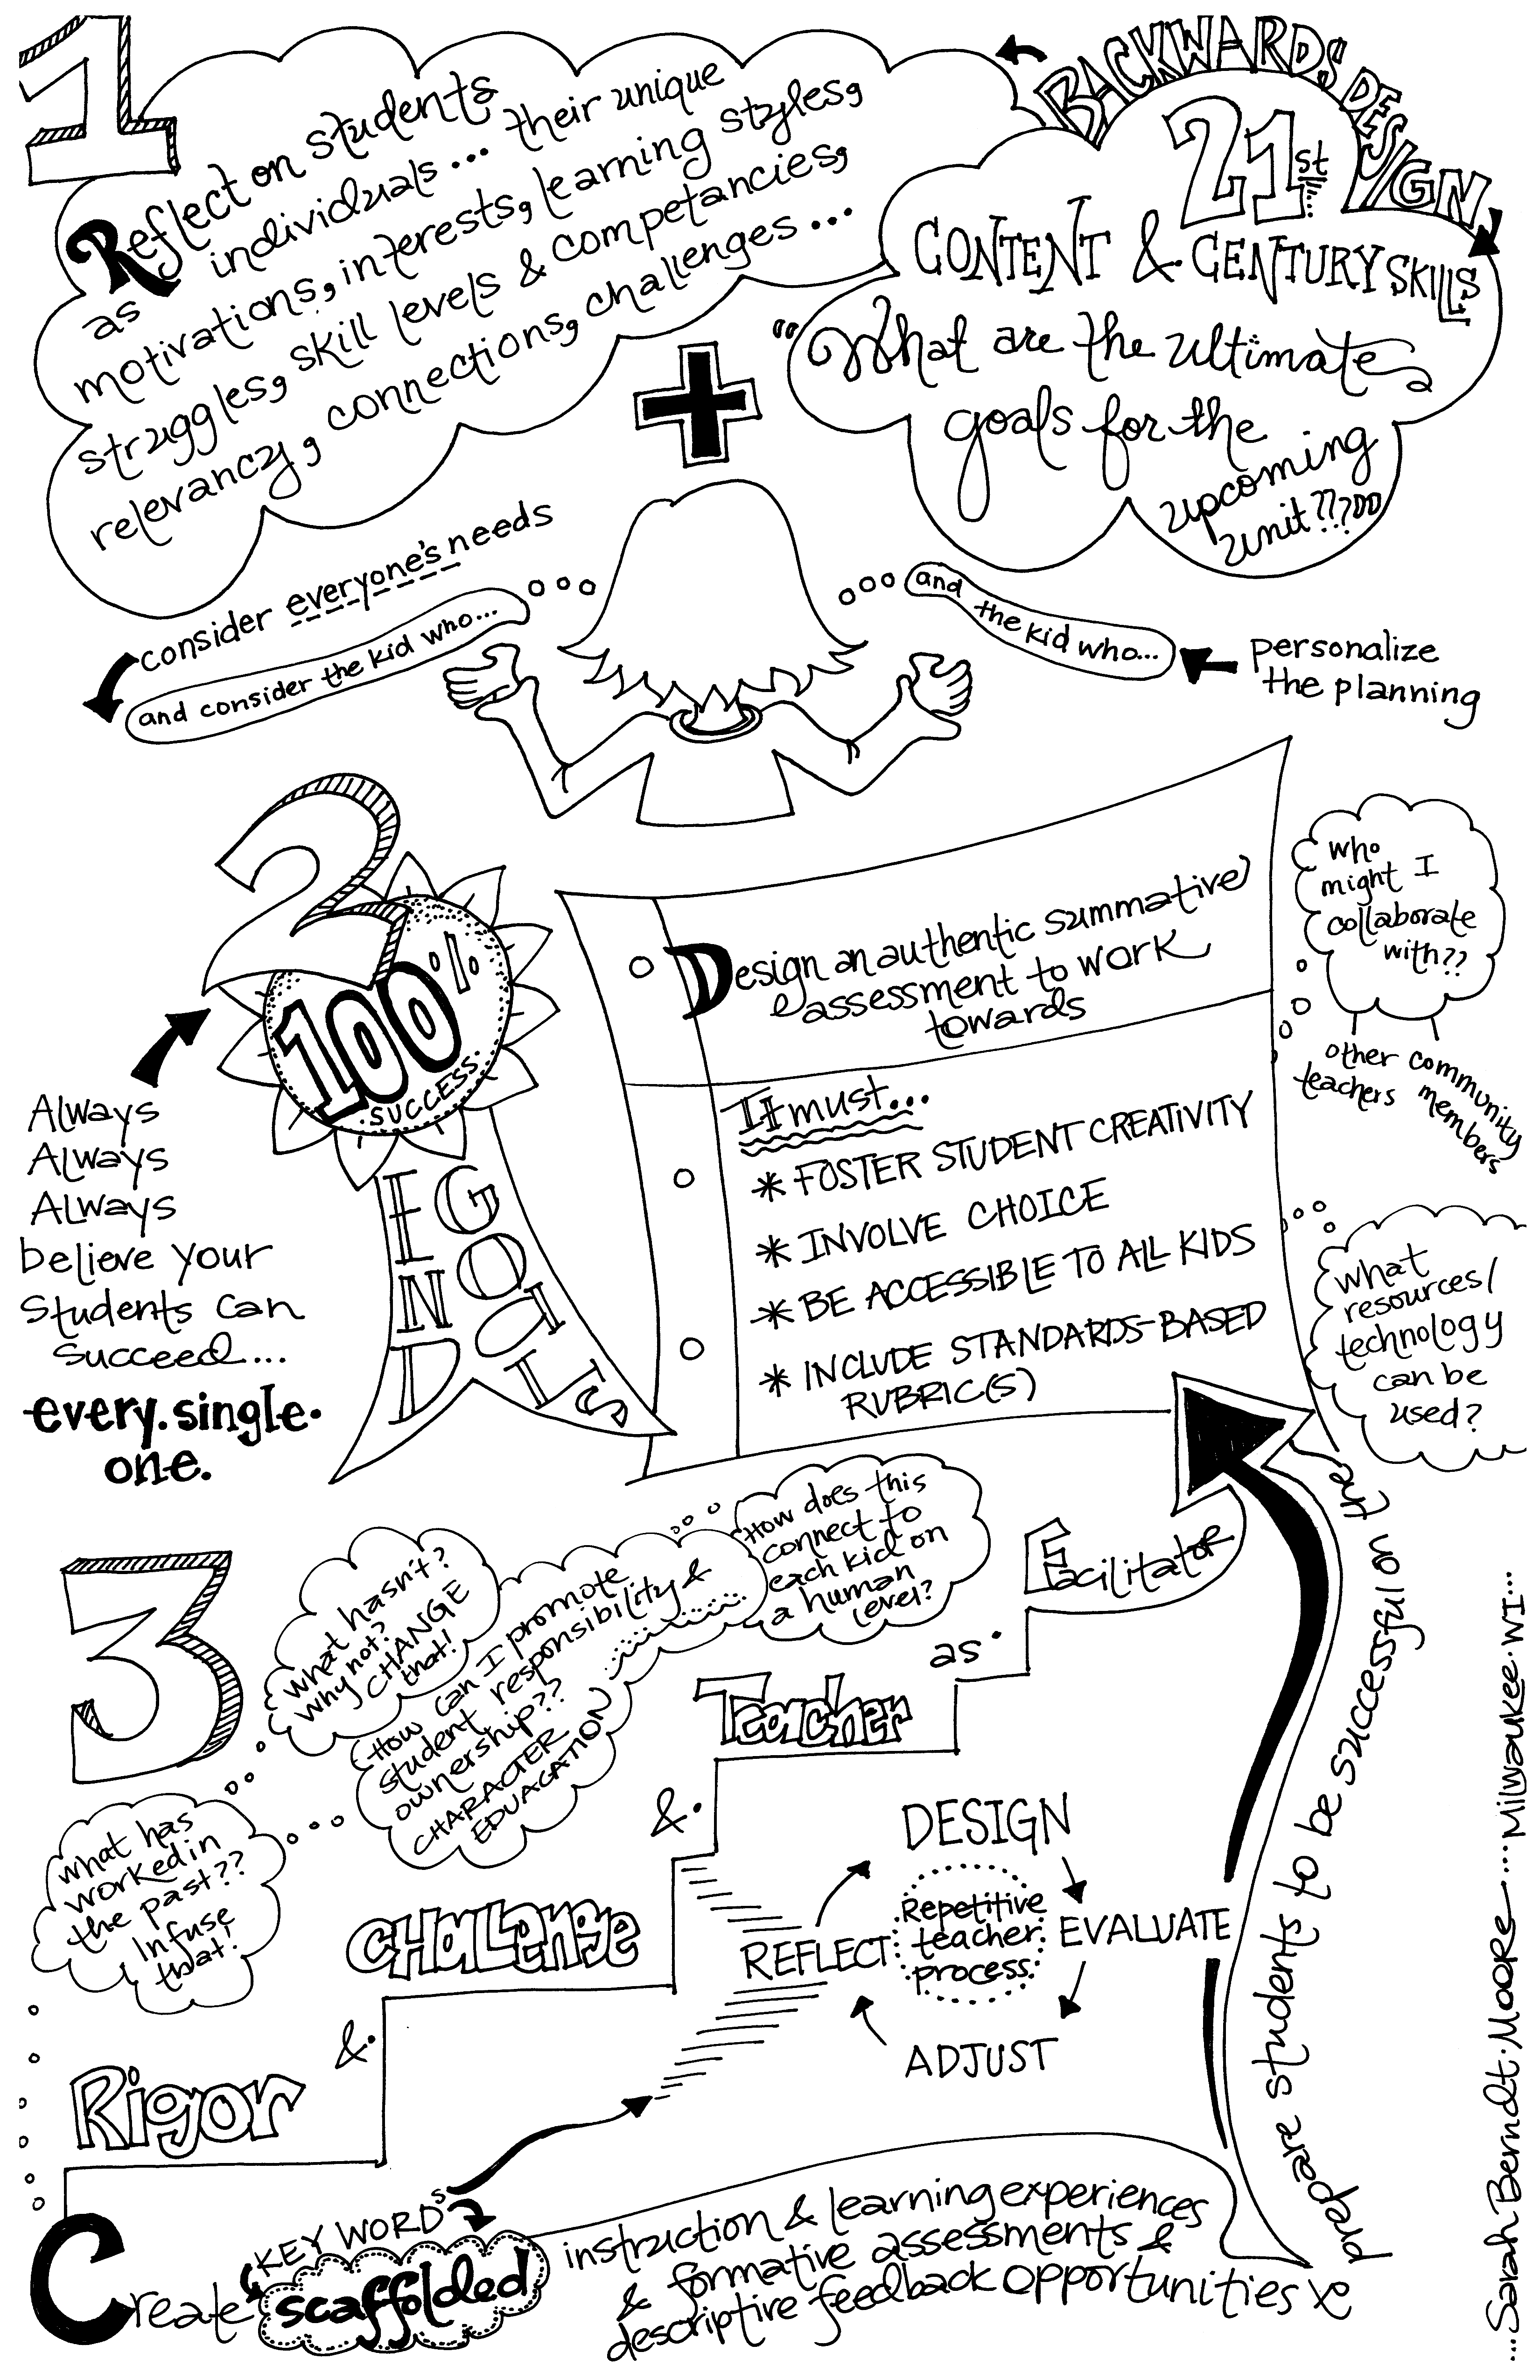 1
Reflect on students
as individuals... their unique
motivations, interests, learning styles,
struggles, skill levels & competancies,
relevancy, connections, challenges...
BACKWARDS DESIGN
21st
CONTENT & CENTURY SKILLS
"What are the ultimate
goals for the
upcoming
unit???"
+
consider everyone's needs
and consider the kid who...
and the kid who...
personalize
the planning
2
100%
SUCCESS
FIND
GOOD IN
Always
Always
Always
believe your
students can
succeed...
every.single.
one.
Design an authentic summative
assessment to work
towards
It must...
* FOSTER STUDENT CREATIVITY
* INVOLVE CHOICE
* BE ACCESSIBLE TO ALL KIDS
* INCLUDE STANDARDS-BASED
RUBRIC(S)
who
might I
collaborate
with??
other
teachers
community
members
what
resources/
technology
can be
used?
3
what hasn't?
why not?
CHANGE
that!
How can I promote
student responsibility &
ownership??
CHARACTER
EDUACATION
How does this
connect to
each kid on
a human
level?
what has
worked in
the past??
Infuse
that!
Rigor
&
Challenge
&
Teacher
as
Facilitator
DESIGN
EVALUATE
ADJUST
REFLECT
Repetitive
teacher
process
KEY WORDS
Create scaffolded instruction & learning experiences
& formative assessments &
descriptive feedback opportunities to
prepare students to be successful on the
...Sarah Berndt.Moore....Milwaukee.WI...